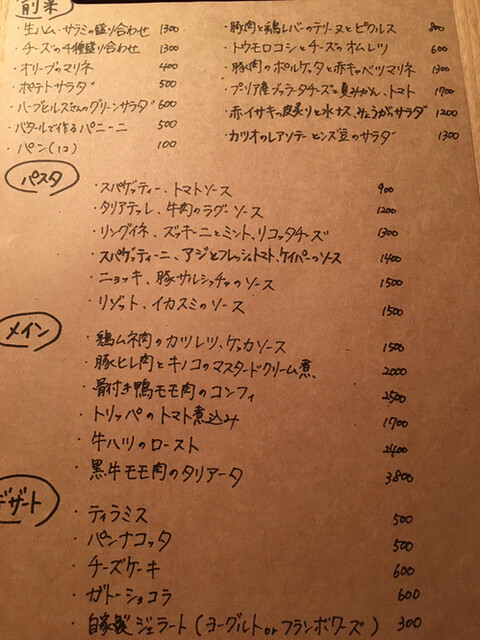 前菜
・生ハム、サラミの盛り合わせ 1300
・チーズの4種盛り合わせ 1300
・オリーブのマリネ 400
・ポテトサラダ 500
・ハーブヒルズさんのグリーンサラダ 600
・バタールで作るパニーニ 500
・パン(1コ) 100
・豚肉と鶏レバーのテリーヌとピクルス 800
・トウモロコシとチーズのオムレツ 600
・豚肉のポルケッタと赤キャベツマリネ 1300
・プーリア産ブッラータチーズと夏みかん、トマト 1700
・赤イサキの皮炙りと水ナス、みょうがのサラダ 1200
・カツオのレアソテーとンズ豆のサラダ 1300
パスタ
・スパゲッティー、トマトソース 900
・タリアテッレ、牛肉のラグーソース 1200
・リングイネ、ズッキーニとミント、リコッタチーズ 1300
・スパゲッティーニ、アジとフレッシュトマト、ケイパーのソース 1400
・ニョッキ、豚サルシッチャのソース 1500
・リゾット、イカスミのソース 1500
メイン
・鶏ムネ肉のカツレツ、ケッカソース 1500
・豚ヒレ肉とキノコのマスタードクリーム煮 2000
・骨付き鴨モモ肉のコンフィ 2500
・トリッパのトマト煮込み 1700
・牛ハツのロースト 2400
・黒牛モモ肉のタリアータ 3800
デザート
・ティラミス 500
・パンナコッタ 500
・チーズケーキ 600
・ガトーショコラ 600
・自家製ジェラート(ヨーグルトorフランボワーズ) 300